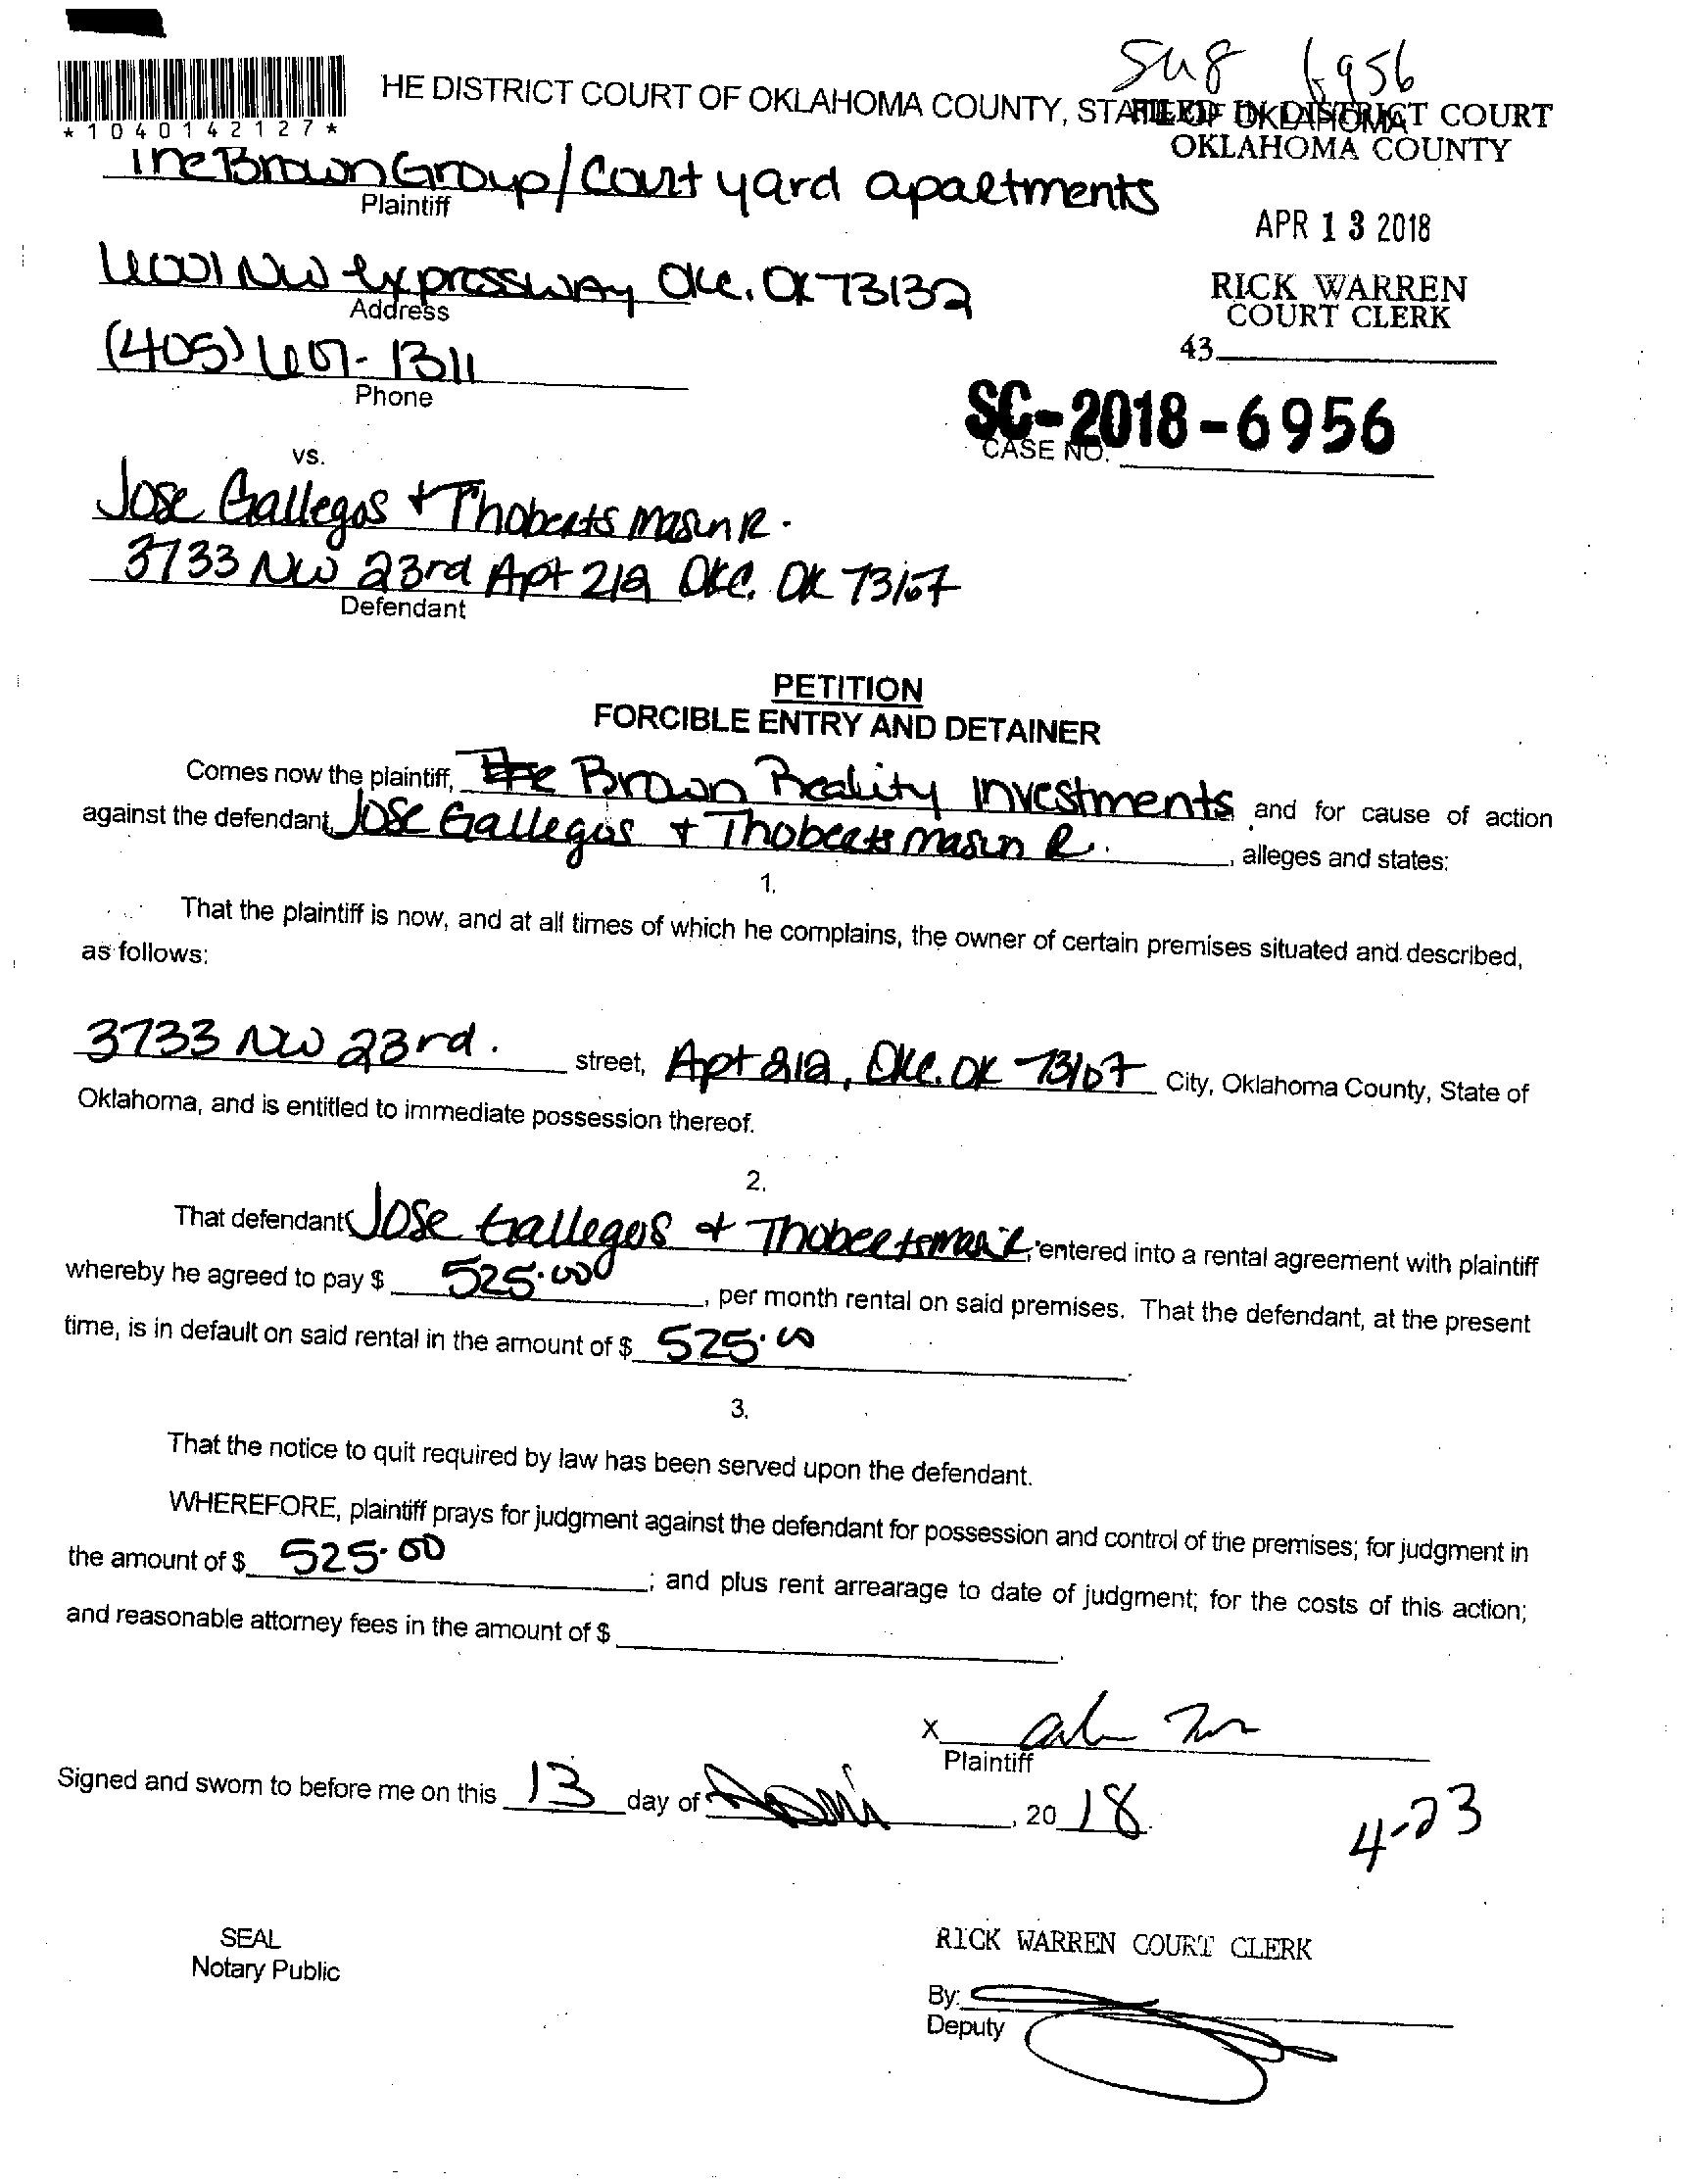 Sm8 6956
HE DISTRICT COURT OF OKLAHOMA COUNTY, STATE OF OKLAHOMA
FILED IN DISTRICT COURT
OKLAHOMA COUNTY
*1040142127*
The Brown Group/Court yard apartments
Plaintiff
APR 13 2018
6001 NW expressway OKC. OK 73132
Address
RICK WARREN
COURT CLERK
43
(405) 607-1311
Phone
SC-2018-6956
CASE NO.
vs.
Jose Gallegos + Thoberts Masun R.
3733 NW 23rd Apt 212 OKC. OK 73107
Defendant
PETITION
FORCIBLE ENTRY AND DETAINER
Comes now the plaintiff, The Brown Reality Investments and for cause of action
against the defendant, Jose Gallegos + Thoberts Masun R. , alleges and states:
1.
That the plaintiff is now, and at all times of which he complains, the owner of certain premises situated and described,
as follows:
3733 NW 23rd. street, Apt 212, OKC. OK 73107 City, Oklahoma County, State of
Oklahoma, and is entitled to immediate possession thereof.
2.
That defendant Jose Gallegos + , entered into a rental agreement with plaintiff
whereby he agreed to pay $ 525.00 , per month rental on said premises. That the defendant, at the present
time, is in default on said rental in the amount of $ 525.00 .
3.
That the notice to quit required by law has been served upon the defendant.
WHEREFORE, plaintiff prays for judgment against the defendant for possession and control of the premises; for judgment in
the amount of $ 525.00 ; and plus rent arrearage to date of judgment; for the costs of this action;
and reasonable attorney fees in the amount of $ .
X
Plaintiff
Signed and sworn to before me on this 13 day of , 20 18.
4-23
SEAL
Notary Public
RICK WARREN COURT CLERK
By:
Deputy